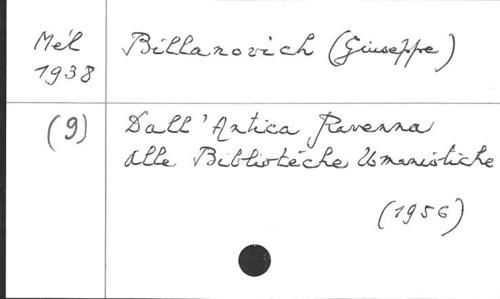 Mél
1938
Billanovich (Giuseppe)
(9)
Dall'Antica Ravenna
alle Bibliotéche Umanistiche
(1956)